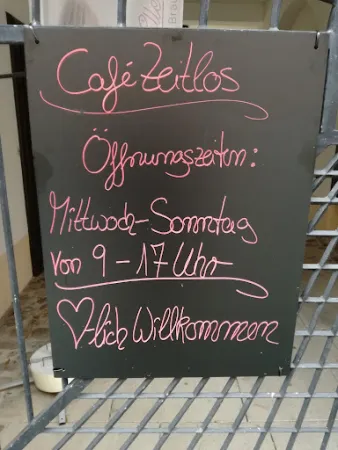 Café Zeitlos
Öffnungszeiten:
Mittwoch-Sonntag
von 9-17 Uhr
♡-lich Willkommen